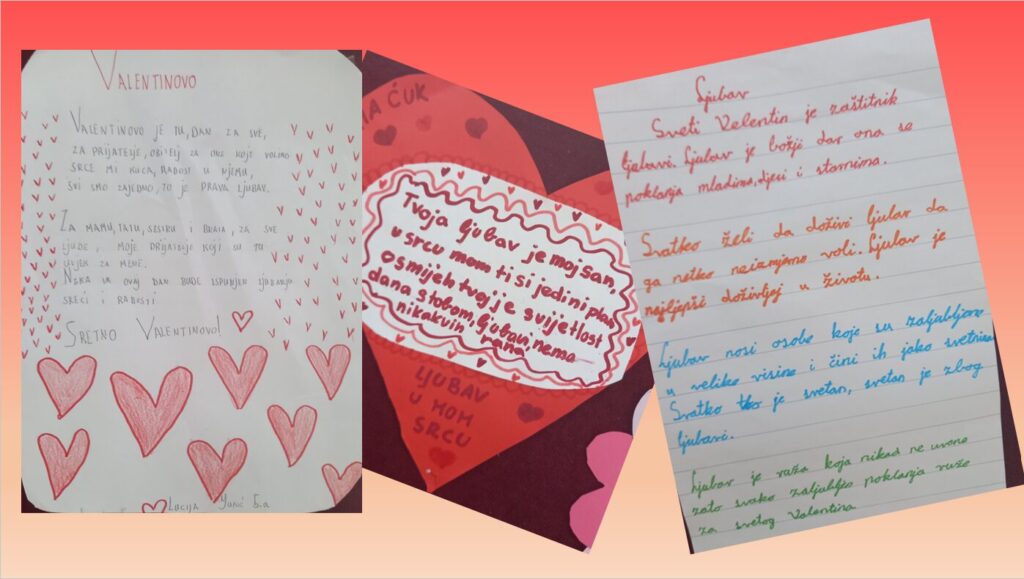 VALENTINOVO
VALENTINOVO JE TU, DAN ZA SVE,
ZA PRIJATELJE, OBITELJ ZA ONE KOJE VOLIMO
SRCE MI KUCA, RADOST U NJEMU,
SVI SMO ZAJEDNO, TO JE PRAVA LJUBAV.
ZA MAMU, TATU, SESTRU I BRATA, ZA SVE
LJUDE, MOJE PRIJATELJE KOJI SU TU
UVJEK ZA MENE.
NEKA IM OVAJ DAN BUDE ISPUNJEN
SREĆI I RADOSTI
SRETNO VALENTINOVO!
LUCIJA 5.a
ĆUK
Tvoja ljubav je moj san,
u srcu mom ti si jedini plan
osmijeh tvoj je svijetlost
dana s tobom, ljubavi, nema
nikakvih rana
LJUBAV
U MOM
SRCU
Ljubav
Sveti Velentin je zaštitnik
ljubavi. Ljubav je božji dar ona se
poklanja mladima, djeci i starcima.
Svatko želi da doživi ljubav da
ga netko neizmjerno voli. Ljubav je
najljepši doživljaj u životu.
Ljubav nosi osobe koje su zaljubljene
u velike visine i čini ih jako sretnima
Svatko tko je sretan, sretan je zbog
ljubavi.
Ljubav je ruža koja nikad ne uvene
zato svako zaljubljen poklanja ruže
za svetog Valentina